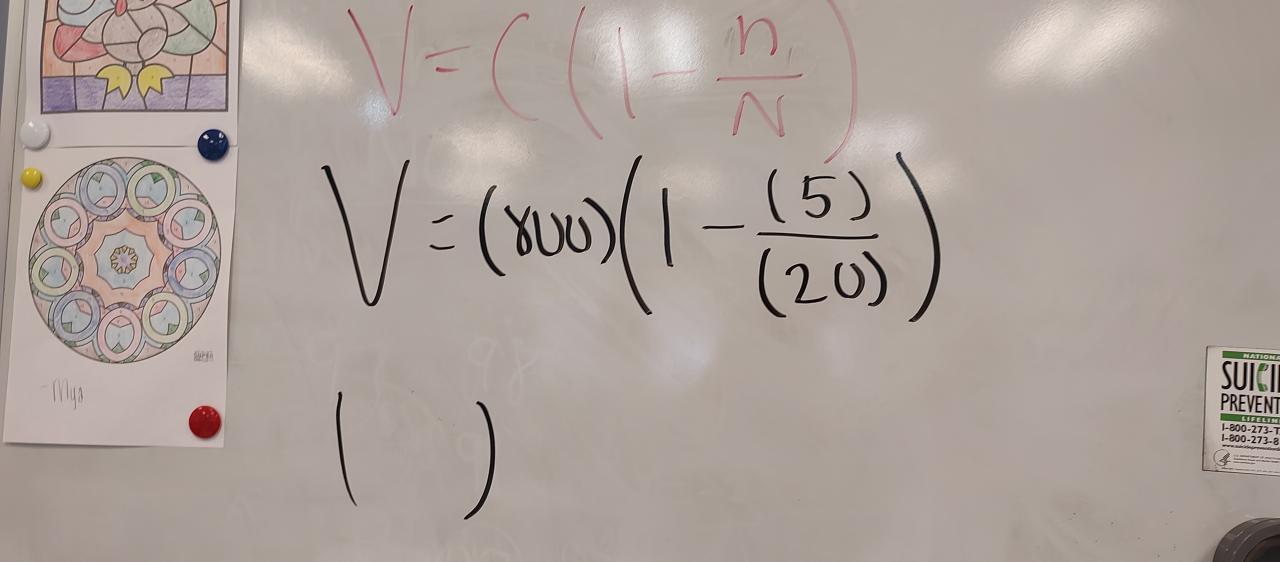 V = C (1 - n/N)
V = (800)(1 - (5)/(20))
( )
-Mya
NATIONA
SUICI
PREVENT
LIFELIN
1-800-273-T
1-800-273-8